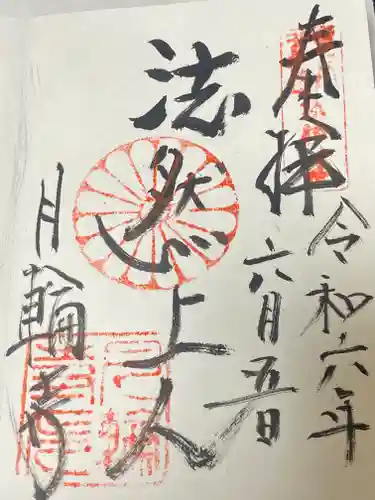 奉拝
令和六年
六月五日
法然上人
月輪寺